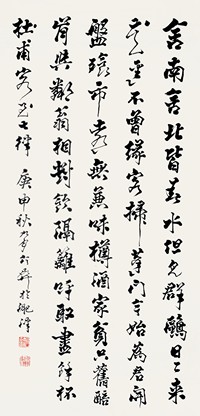 舍南舍北皆春水但見群鷗日日來
花徑不曾緣客掃蓬門今始為君開
盤飧市遠無兼味樽酒家貧只舊醅
肯與鄰翁相對飲隔籬呼取盡餘杯
杜甫客至七律 庚申秋